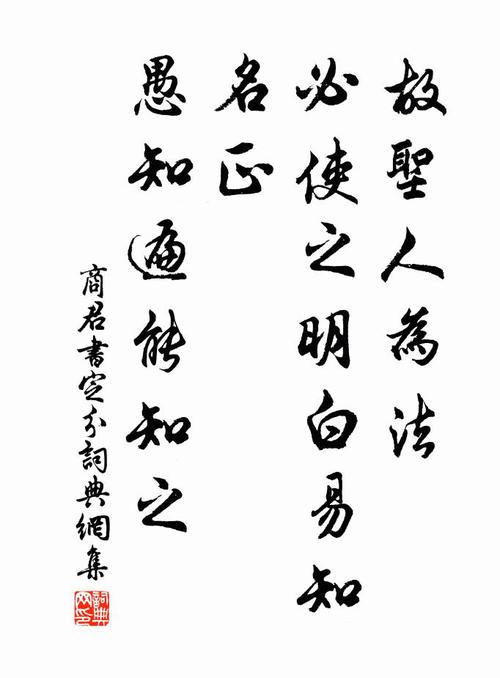 故聖人為法
必使之明白易知
名正
愚知遍能知之
商君書定分詞典網集
詞典网印